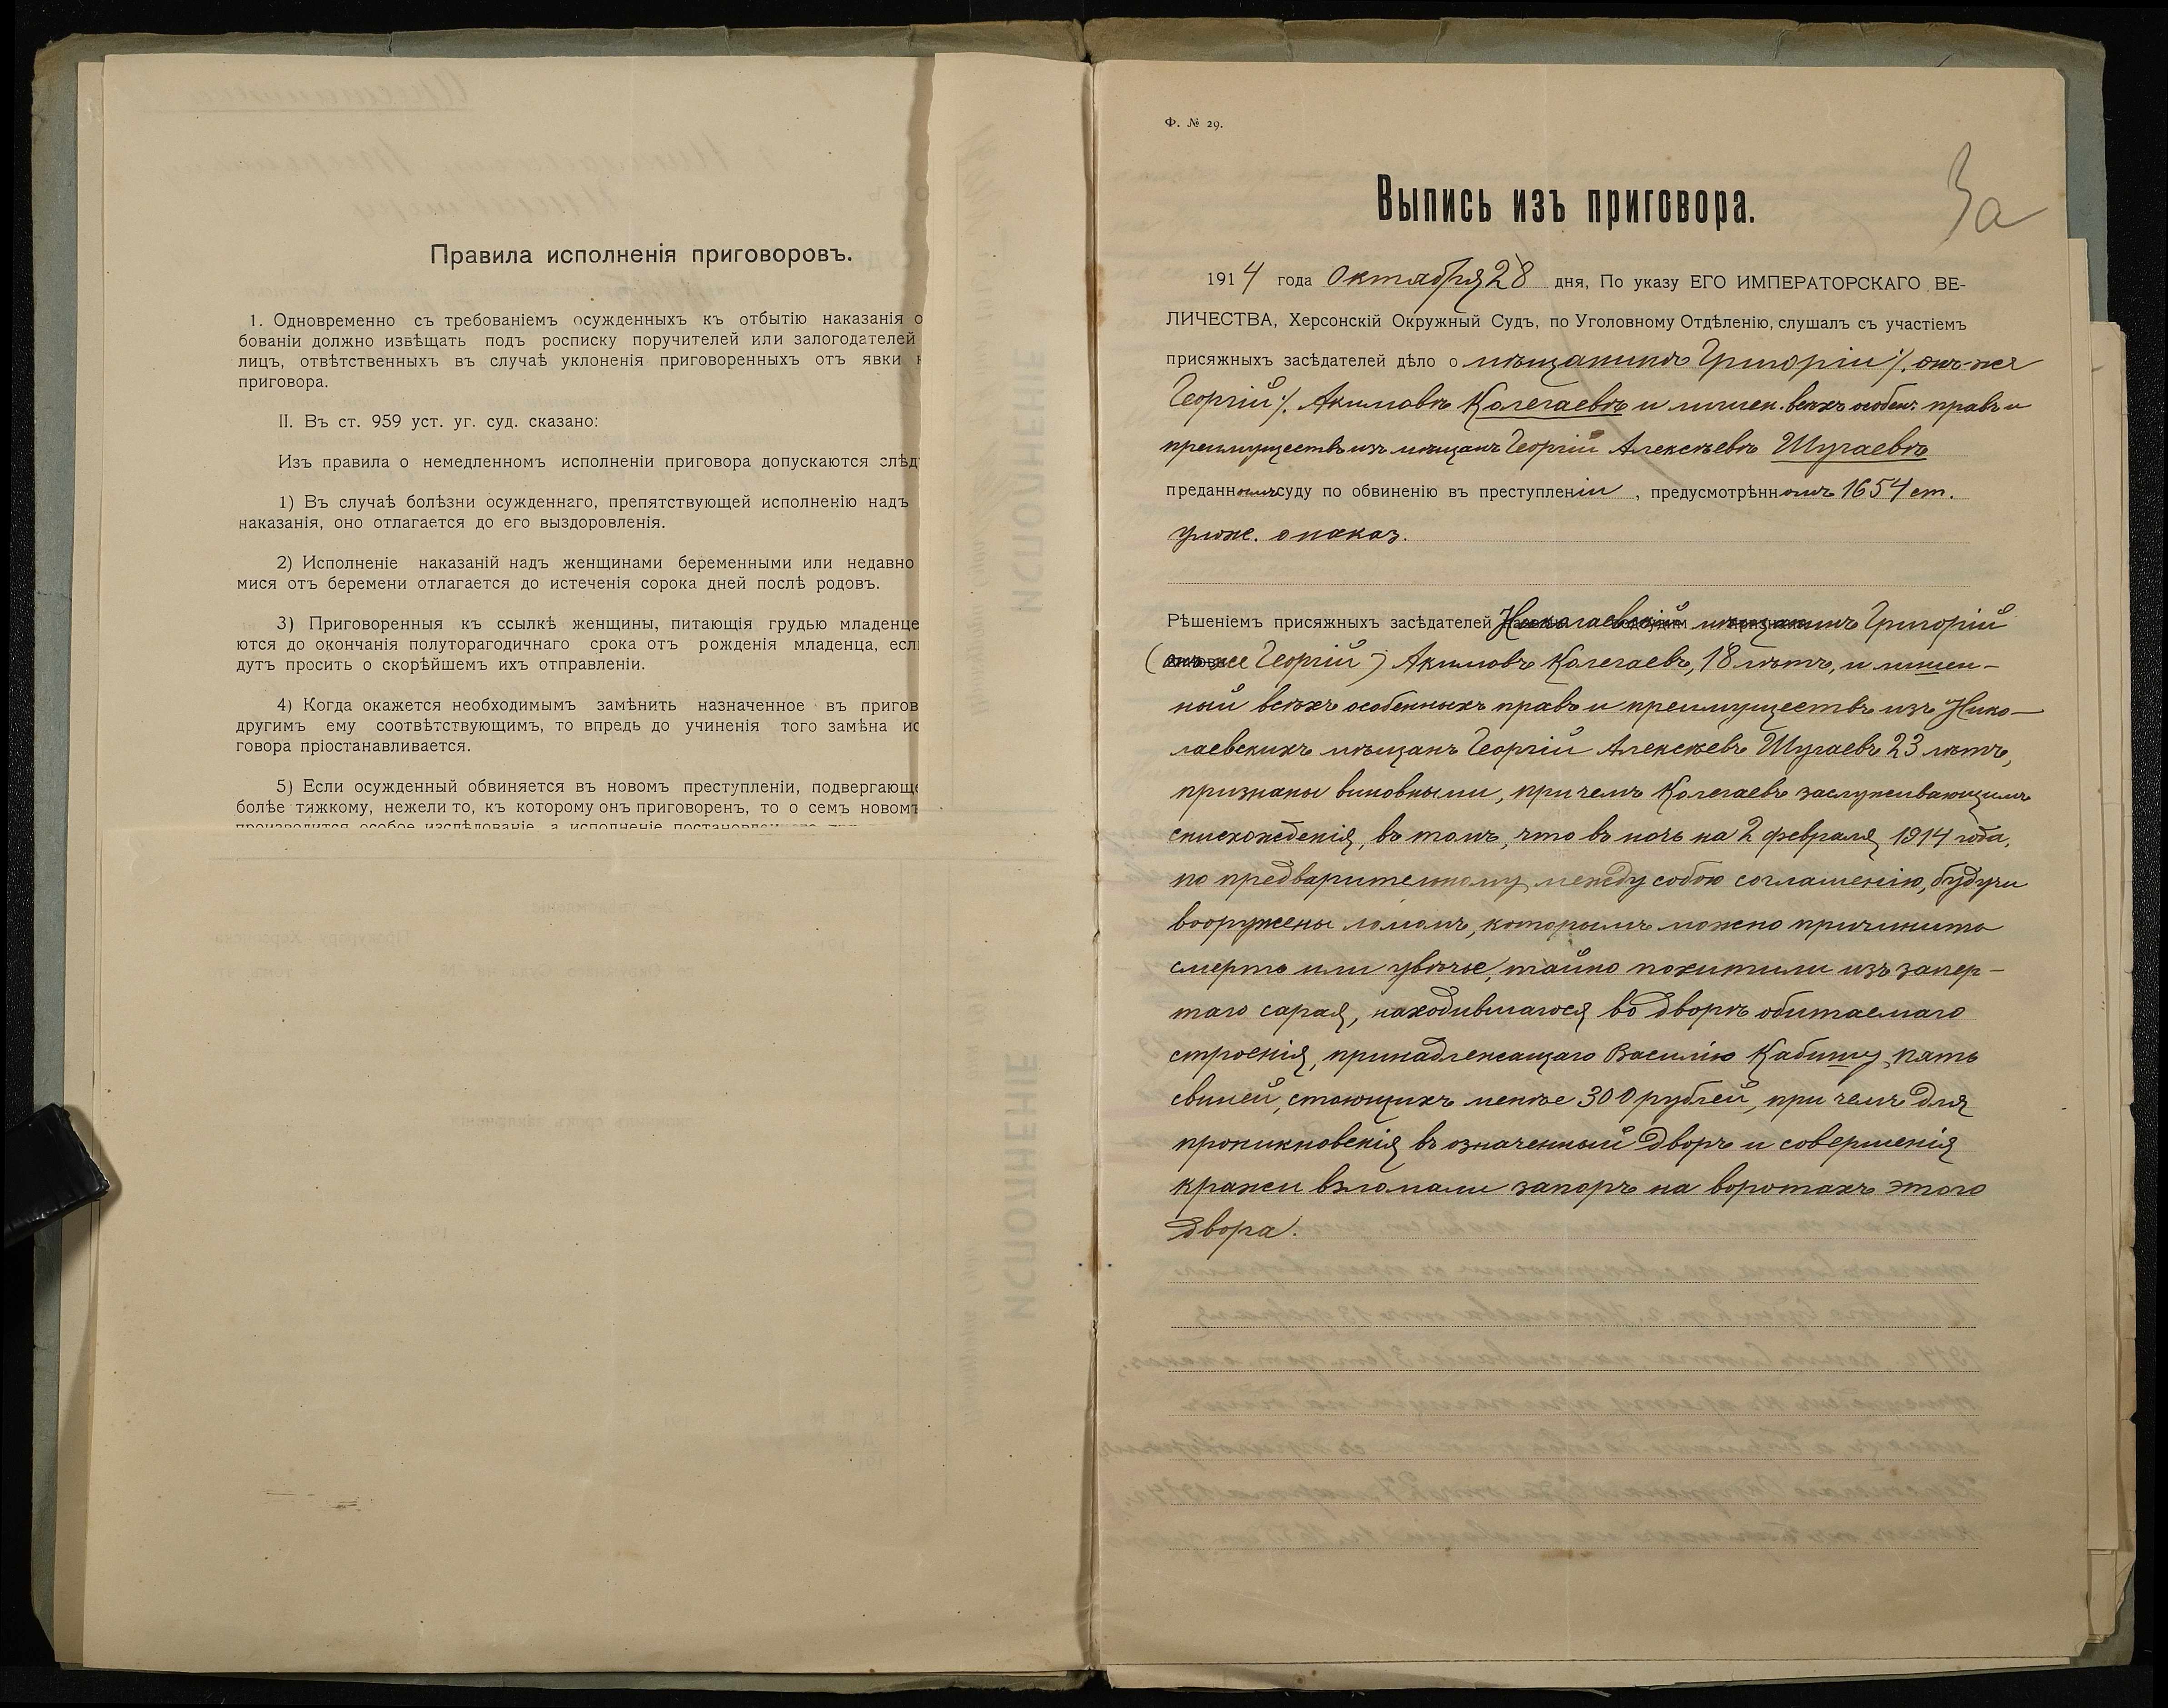 Правила исполненія приговоровъ.
1. Одновременно съ требованіемъ осужденныхъ къ отбытію наказанія о
бованіи должно извѣщать подъ росписку поручителей или залогодателей
лицъ, отвѣтственныхъ въ случаѣ уклоненія приговоренныхъ отъ явки
приговора.
II. Въ ст. 959 уст. уг. суд. сказано:
Изъ правила о немедленномъ исполненіи приговора допускаются слѣд
1) Въ случаѣ болѣзни осужденнаго, препятствующей исполненію надъ
наказанія, оно отлагается до его выздоровленія.
2) Исполненіе наказаній надъ женщинами беременными или недавно
мися отъ беремени отлагается до истеченія сорока дней послѣ родовъ.
3) Приговоренныя къ ссылкѣ женщины, питающія грудью младенце
ются до окончанія полуторагодичнаго срока отъ рожденія младенца, есл
дутъ просить о скорѣйшемъ ихъ отправленіи.
4) Когда окажется необходимымъ замѣнить назначенное въ пригов
другимъ ему соотвѣтствующимъ, то впредь до учиненія того замѣна ис
говора пріостанавливается.
5) Если осужденный обвиняется въ новомъ преступленіи, подвергающе
болѣе тяжкому, нежели то, къ которому онъ приговоренъ, то о семъ новомъ
производится особое изслѣдованіе, а исполненіе
Ф. № 29.
3а
Выпись изъ приговора.
1914 года Октября 28 дня, По указу ЕГО ИМПЕРАТОРСКАГО ВЕ-
ЛИЧЕСТВА, Херсонскій Окружный Судъ, по Уголовному Отдѣленію, слушалъ съ участіемъ
присяжныхъ засѣдателей дѣло о мѣщанинѣ Григоріи /. онъ-же
Георгій /. Акимовѣ Калегаевѣ и лишен. всѣхъ особен. правъ и
преимуществъ изъ мѣщанъ Георгіи Алексѣевѣ Шугаевѣ
преданномъ суду по обвиненію въ преступленіи, предусмотрѣнномъ 1654 ст.
улож. о наказ.
Рѣшеніемъ присяжныхъ засѣдателей Николаевскій мѣщанинъ Григорій
(онъ же Георгій) Акимовъ Калегаевъ, 18 лѣтъ, и лишен-
ный всѣхъ особенныхъ правъ и преимуществъ изъ Нико-
лаевскихъ мѣщанъ Георгій Алексѣевъ Шугаевъ 23 лѣтъ,
признаны виновными, при чемъ Калегаевъ заслуживающимъ
снисхожденія, въ томъ, что въ ночь на 2 февраля 1914 года,
по предварительному между собою соглашенію, будучи
вооружены ломомъ, которымъ можно причинить
смерть или увѣчье, тайно похитили изъ запер-
таго сарая, находившагося во дворѣ обитаемаго
строенія, принадлежащаго Василію Кабишу, пять
свиней, стоющихъ менѣе 300 рублей, при чемъ для
проникновенія въ означенный дворъ и совершенія
кражи взломали запоръ на воротахъ этого
двора.